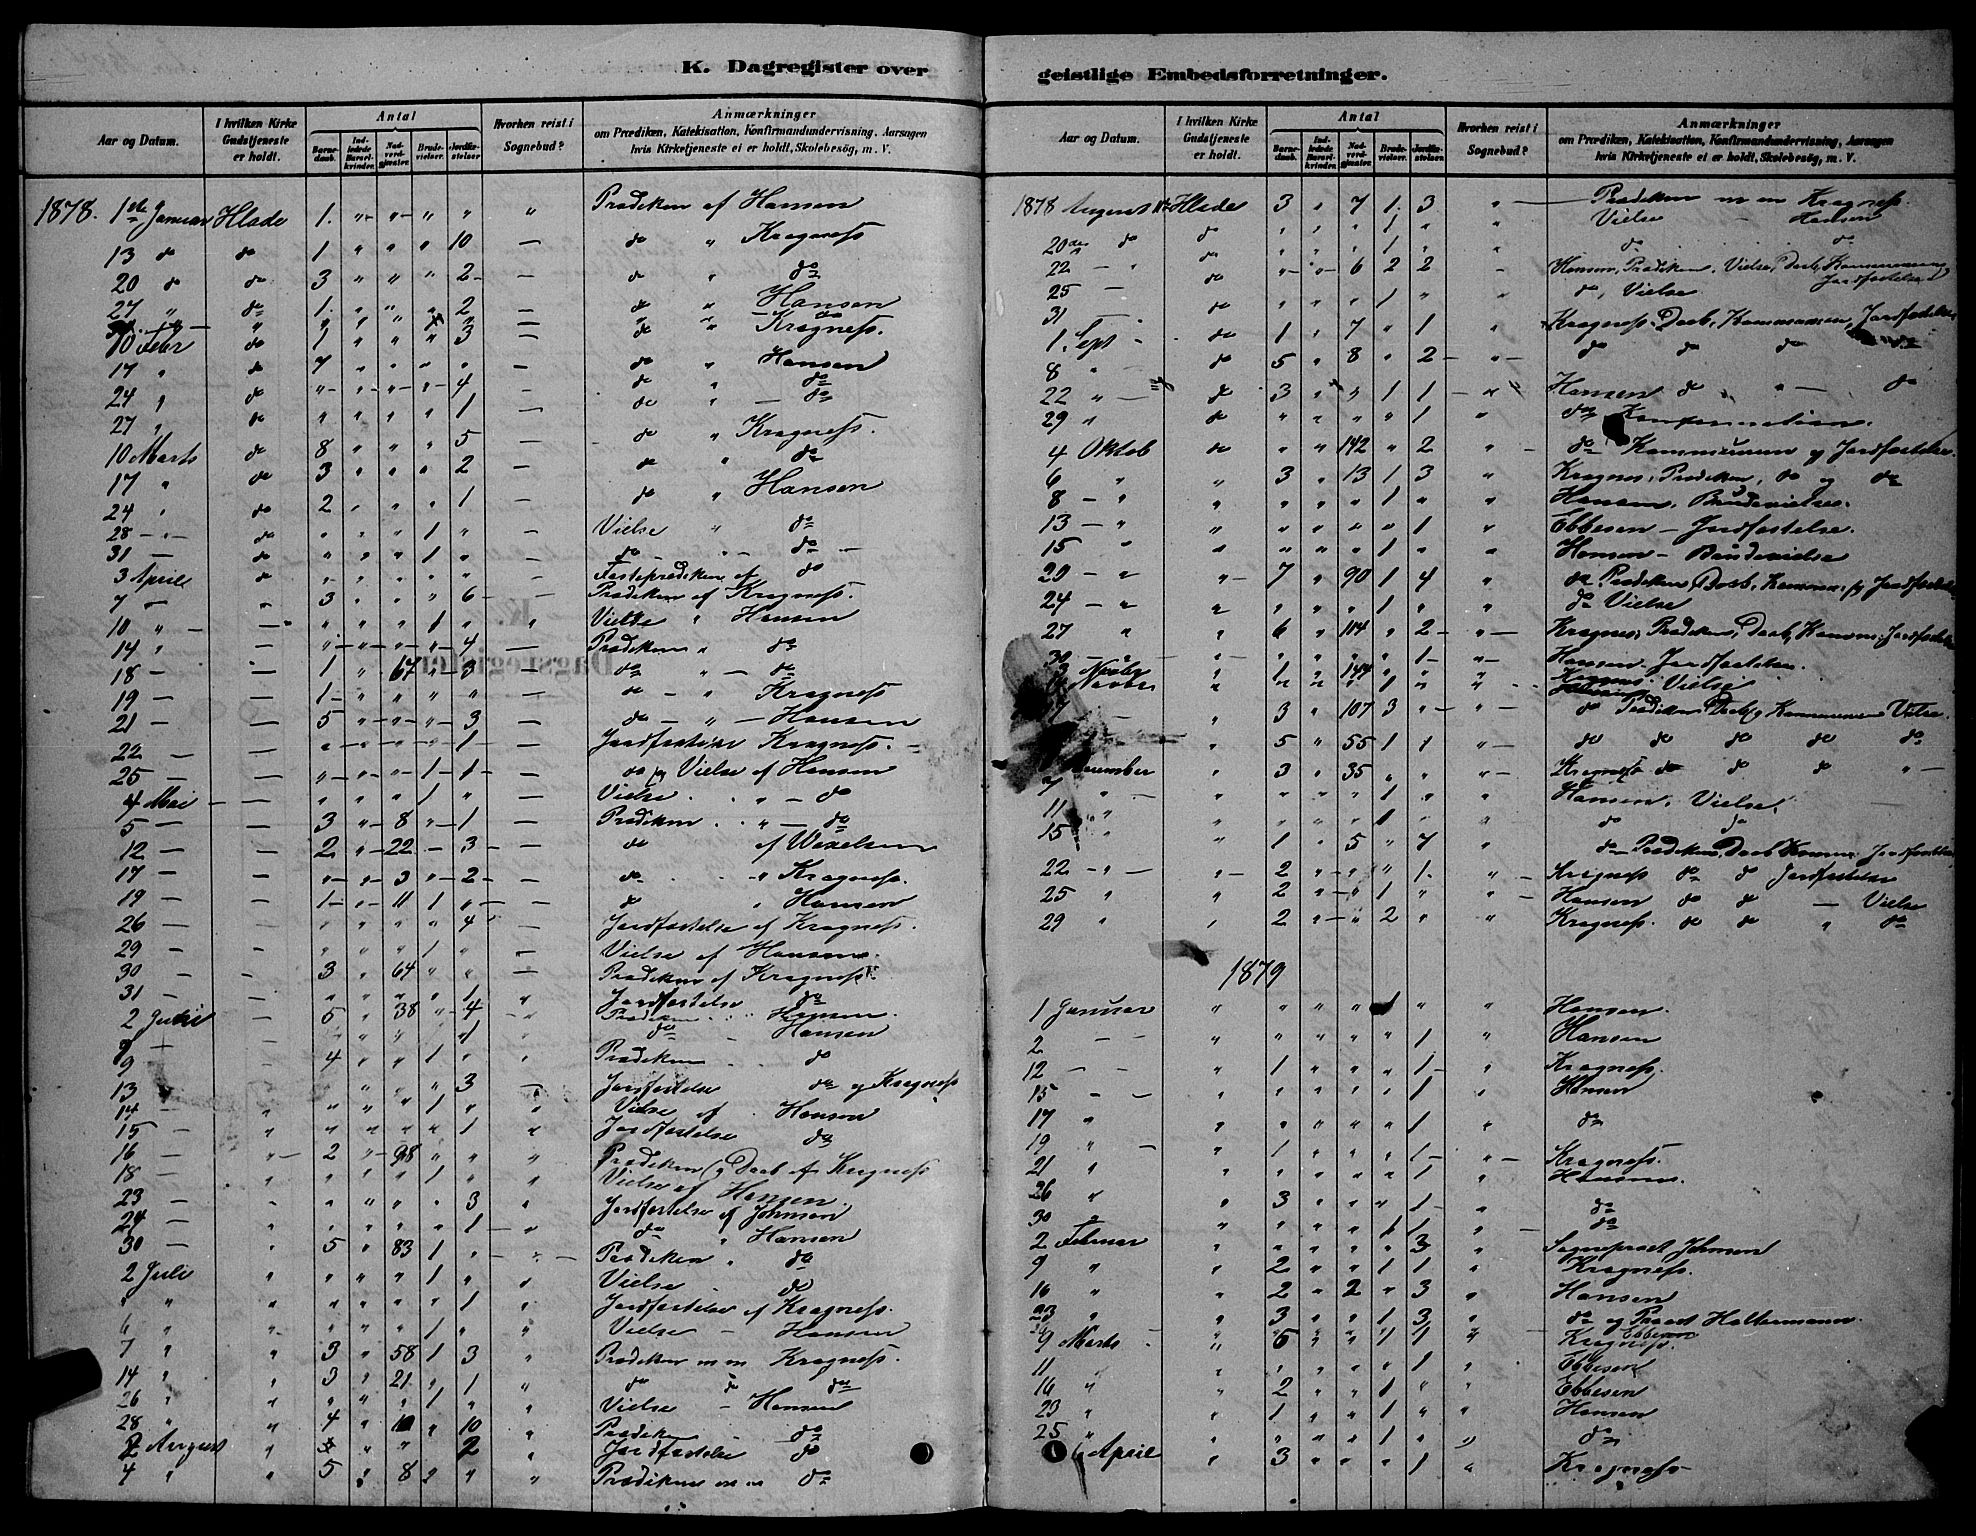 K. Dagregister over
Aar og Datum.
I hvilken Kirke Gudstjeneste er holdt.
Antal
Barnedaab.
Indledede Barselkvinder.
Nadverdgjæster.
Brudevielser.
Jordfæstelser
Hvorhen reist i Sognebud?
Anmærkninger
om Prædiken, Katekisation, Konfirmandundervisning, Aarsagen
hvis Kirketjeneste ei er holdt, Skolebesög, m. V.
1878. 1ste Januar Hlade 1. " " " " " Prædiken af Hansen
13 do do 1 " " " 10 — do " Kragness
20 do do 3 " " " 2 — do " do
27 " do 1. " " " 2 — do " Hansen
10 Febr do 1 " " " 3 — do " Kragness.
17 " do 7 " " " " — do " Hansen
24 " do " " " " 4 — do " do
27 " do " " " " 1 — do "
10 Marts do 8 " " " 5 — do " Kragness.
17 " do 3 " " " 2 — do " do
24 " do 2 " " " 1 — do " Hansen
28 " do " " " 1 " — Vielse " do
31 — do " " " 1 " — do " do
3 April do " " " " " — Fasteprædiken af do
7 — " 3 " " " 6 — Prædiken af Kragness.
10 " — " " " 1 " " Vielse " Hansen
14 " — " " " " 4 — Prædiken " do
18 — — 1 " 67 " 3 — do " do
19 — — 1 " " " " — do " Kragness
21 — — 5 " " " 3 — do " Hansen
22 — — " " " " 1 — Jordfæstelse Kragness.
25 — — " " " 1 1 — do og Vielse af Hansen
4 Mai — " " " 1 " — Vielse " do
5 — — 3 " 8 " 1 — Prædiken " do
12 — — 2 " 22 " 3 — do af Wexelsen
17 — — " " 3 " 2 — do " Kragness.
19 — — 1 " 11 1 " — do " Hansen
26 — — " " " " 4 — Jordfæstelse af Kragness.
29 — — " " " 1 " — Vielse af Hansen.
30 — — 3 " 64 " " — Prædiken af Kragness.
31 — — " " " " 1 " Jordfæstelse do
2 Juni — 5 " 38 " 4 " Prædiken " Hansen
" " " " 1 " do Hansen
9 — 4 " " 1 " " Prædiken do
13 " " " " 3 — Jordfæstelse do og Kragness
14 — " " " " 1 " " Vielse af Hansen
15 — " " " " " 1 " Jordfæstelse do
16 — " 2 " 98 " " " Prædiken og Daab af Kragness
18 — " " " " 1 " " Vielse af Hansen
23 — " " " " " 3 " Jordfæstelse af Johnson
24 — " " " " " 1 " do " Hansen
30 — " 5 " 83 1 " " Prædiken " do
2 Juli " " " " 1 " " Vielse — do
" " " " " " " 1 " Jordfæstelse af Kragness.
6 " " " " " 1 " " Vielse — Hansen
7 " " 3 " 58 1 3 " Prædiken m m Kragness.
14 " " 3 " 21 " 1 " do do do
26 " " " " " 1 " " Vielse — Hansen
28 " " 4 " " 10 " Prædiken — do
2 August " " " " 2 " Jordfæstelse do
4 " " 5 " 8 2 " " Prædiken m m do
geistlige Embedsforretninger.
Aar og Datum.
I hvilken Kirke Gudstjeneste er holdt.
Antal
Barnedaab.
Indledede Barselkvinder.
Nadverdgjæster.
Brudevielser.
Jordfæstelser
Hvorhen reist i Sognebud?
Anmærkninger
om Prædiken, Katekisation, Konfirmandundervisning, Aarsagen
hvis Kirketjeneste ei er holdt, Skolebesög, m. V.
1878 August Hlade 3 " 7 1. 3 " Prædiken m m Kragness.
20de do do " " " 1 " " Vielse — Hansen
22 — " do " " " 1 " " do do
25 — do " " 6 2 2 — Hansen, Prædiken, Vielse, Daab, Kommunion, Jordfæstelse
31 — do " " " 1 " " do, Vielse
1. Sept do 1 " 7 " 1 " Kragness. Daab, Kommunion, Jordfæstelse
8 " do 5 " 8 " 2 — do do do
22 " do 3 " " 1 1 " Hansen do " — do
29 " do " " " " 1 " do Confirmation.
4 Oktob do " " 142 " 2 " do Kommunion og Jordfæstelse.
6 " " 3 " 13 1 3 " Kragnes, Prædiken, do og do
8 — " " " " " 1 " " Hansen, Brudevielse.
13 — " " " " " " 1 " Ebbesen — Jordfæstelse.
15 " " " " " 1 " " Hansen — Brudevielse
20 — " " 7 " 90 1 4 " do Prædiken, Daab, Kommun: og Jordfæstelse
24 — " " " " " 1 " " do Vielse
27 " " 6 " 104 " 2 " Kragnes, Prædiken, Daab, Kommun: Jordfæstelse
30 — " " " " " 1 " Hansen. Jordfæstelse.
3 Novbr " 1 " 144 " " " Kragnes.
Novber " " " " 1 " " Vielse
" 3 " 107 3 " " do Prædiken, Daab, og Kommunion Vielse
" 5 " 55 1 1 " do do do do do
December " 3 " 35 " " " Kragness do do do "
7 " " " " " 1 " " Hansen, Vielse.
11 " " " " " 1 " " do do
15 " " 1 " 5 " 7 " do Prædiken, Daab, Kommun: Jordfæstelse
22 — " " 2 " " " 1. " Kragness do do Jordfæstelse
25 " " 2 " " 1 " " Hansen do do — Vielse
29 " " 2 " " 2 " " Kragness. do do " do
1879
1 Januar " " " " 1 " " Hansen.
2 — " " " " " 1 " Hansen
12 — " 1 " " " 1 " Kragness.
15 — " " " " " 1 " Hansen
17 " " " " " " 1 " do
19 " " 1 " " " 1 " Kragness.
21 " " " " " " 1 " Hansen.
26 " " 3 " " " 1 " do
30 " " " " " 1 1 " do
2 Februar " " " " " 3 " Sognepræst Johnson
9 " " 2 " " 1 1 " Kragness.
16 " " 2 " 2 " 3 " Hansen
23 " " 3 " " 1 3 " do og Præst Haltermann.
9 Marts " 5 " " 1 1 " Kragness. Ebbesen
11 " " " " " " 1 " Ebbesen
16 " " 2 " " 1 " " Ebbesen
23 " " 1 " " 1 " " Hansen
25 " " " " " 1 " " do
6 April " 3 " " " 1 " Kragness